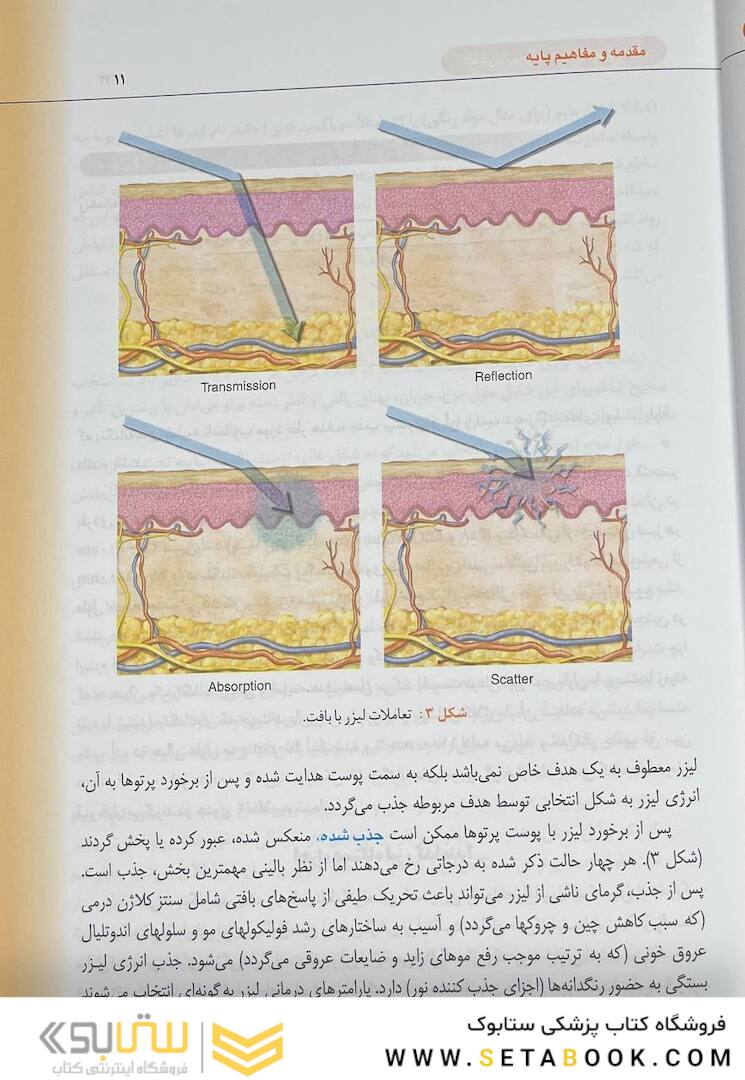 مقدمه و مفاهیم پایه
۱۱
Transmission
Reflection
Absorption
Scatter
شکل ۳: تعاملات لیزر با بافت.
لیزر معطوف به یک هدف خاص نمی‌باشد بلکه به سمت پوست هدایت شده و پس از برخورد پرتوها به آن،
انرژی لیزر به شکل انتخابی توسط هدف مربوطه جذب می‌گردد.
پس از برخورد لیزر با پوست پرتوها ممکن است جذب شده، منعکس شده، عبور کرده یا پخش گردند
(شکل ۳). هر چهار حالت ذکر شده به درجاتی رخ می‌دهند اما از نظر بالینی مهمترین بخش، جذب است.
پس از جذب، گرمای ناشی از لیزر می‌تواند باعث تحریک طیفی از پاسخ‌های بافتی شامل سنتز کلاژن درمی
(که سبب کاهش چین و چروکها می‌گردد) و آسیب به ساختارهای رشد فولیکولهای مو و سلولهای اندوتلیال
عروق خونی (که به ترتیب موجب رفع موهای زاید و ضایعات عروقی می‌گردد) می‌شود. جذب انرژی لیزر
بستگی به حضور رنگدانه‌ها (اجزای جذب کننده نور) دارد. پارامترهای درمانی لیزر به گونه‌ای انتخاب می‌شوند
ستابوک
فروشگاه اینترنتی کتاب
فروشگاه کتاب پزشکی ستابوک
WWW.SETABOOK.COM